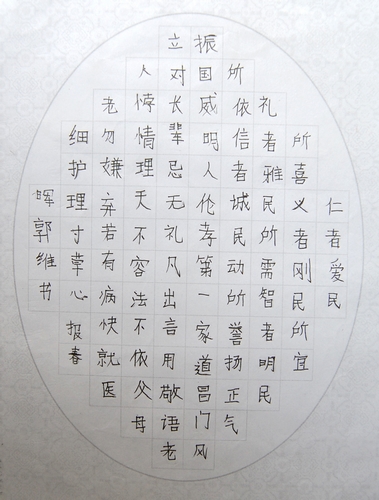 仁者爱民
所喜义者刚民所宜
礼者雅民所需智者明民
所依信者城民动所誉扬正气
振国威明人伦孝第一家道昌门风
立对长辈忌无礼凡出言用敬语老
人悖情理天不容法不依父母
老勿嫌弃若有病快就医
细护理寸草心报春
晖郭维书